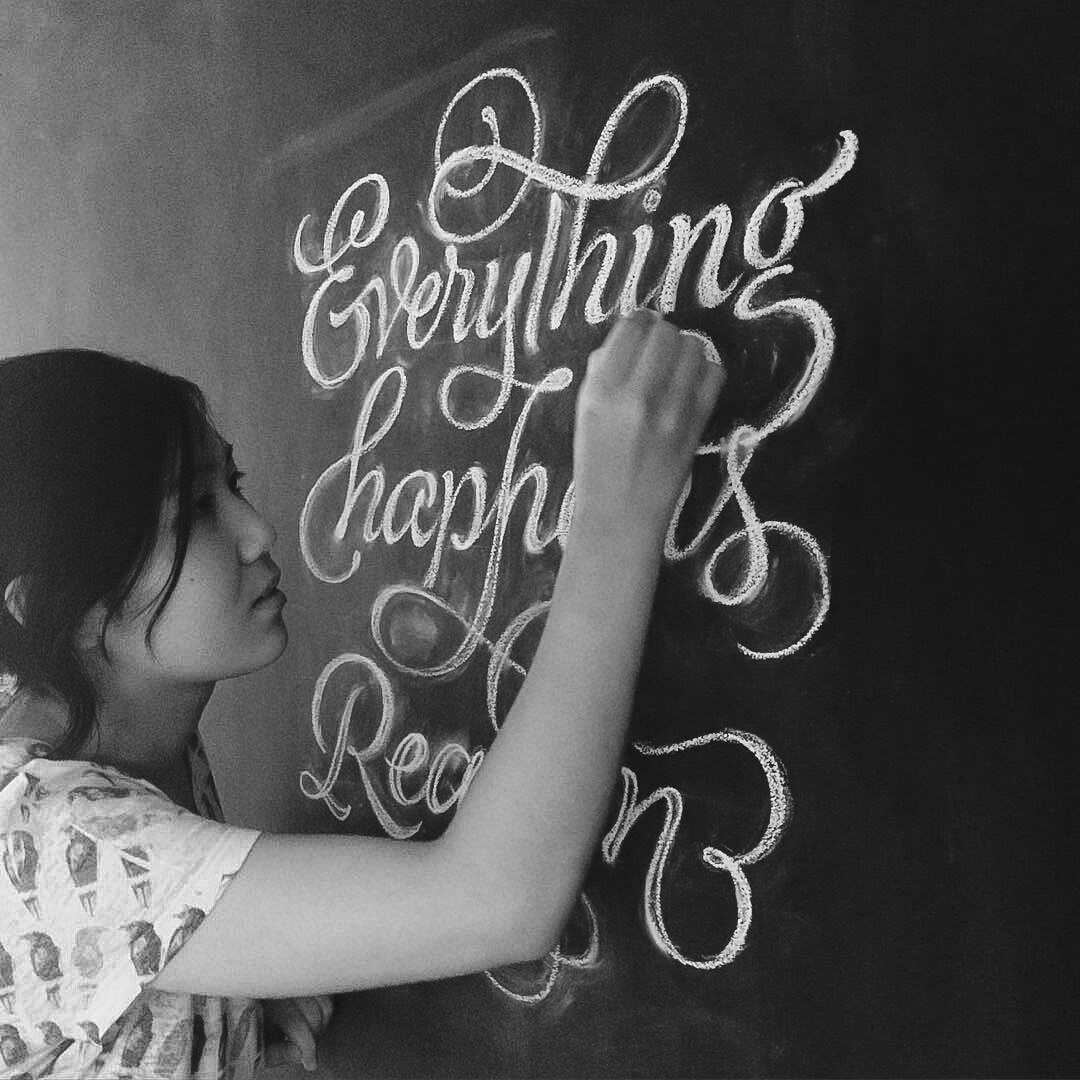 EveryThing
happens
Reason